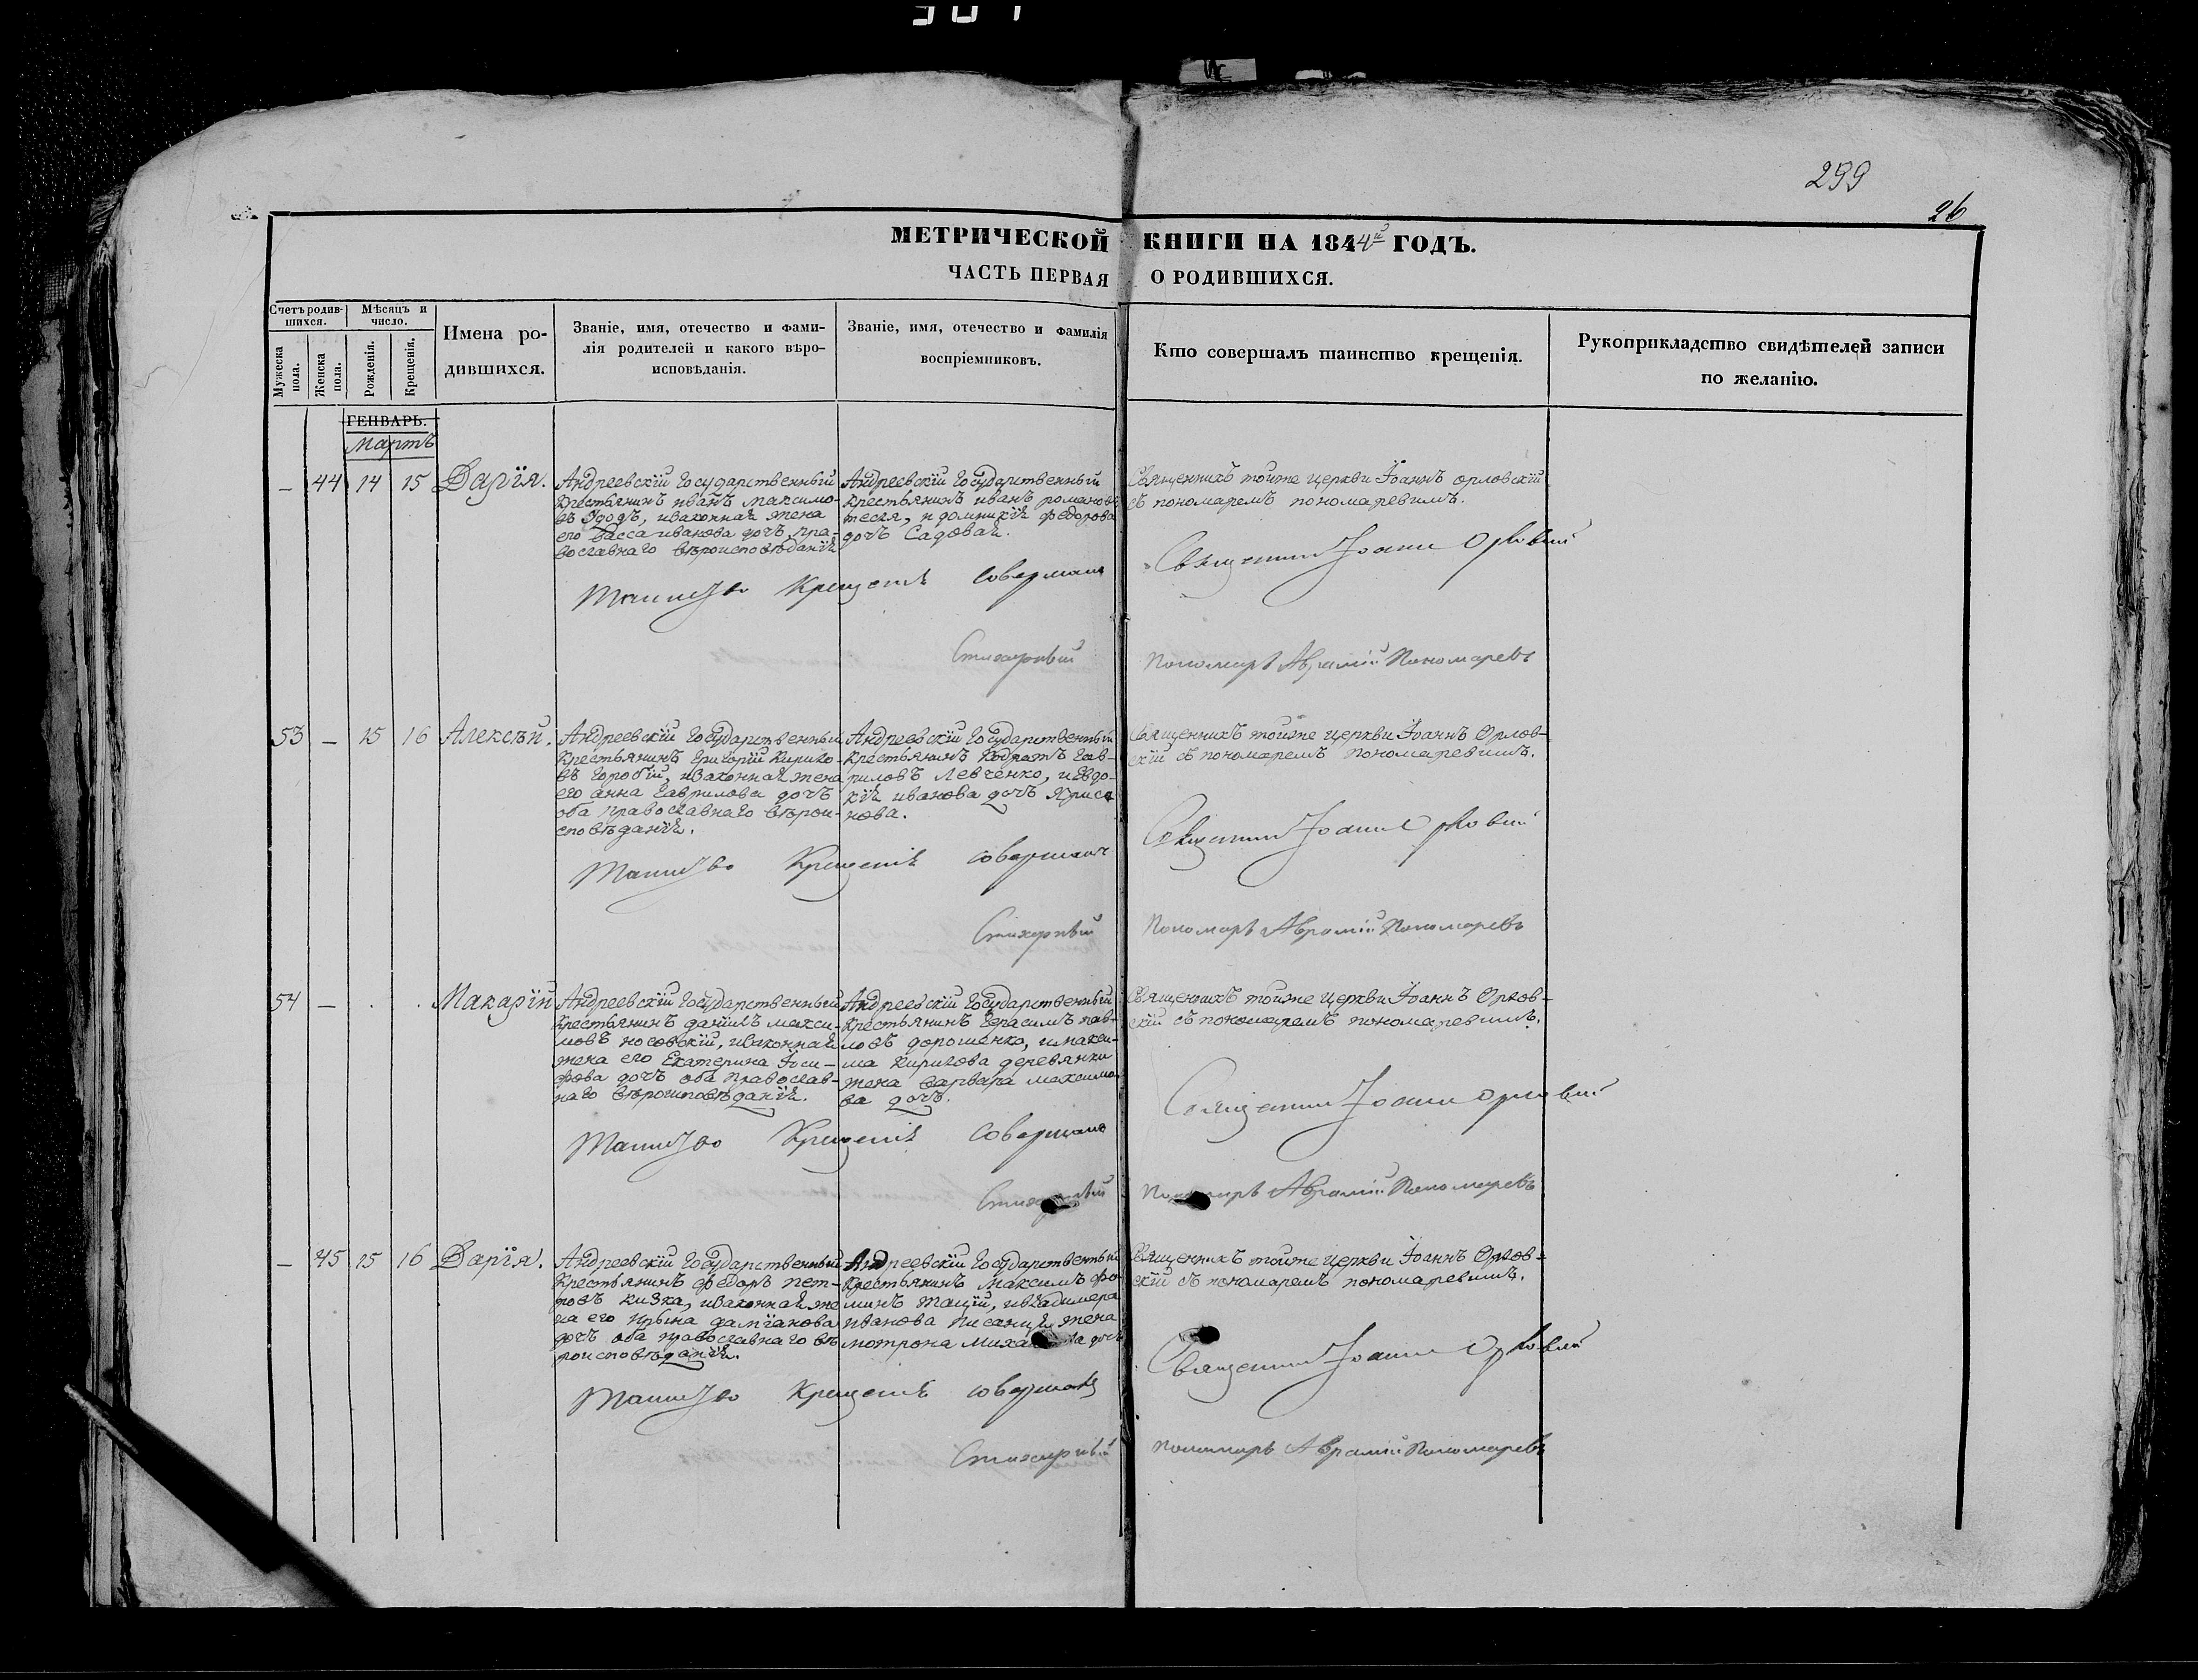 299
26
МЕТРИЧЕСКОЙ КНИГИ НА 1844й ГОДЪ.
ЧАСТЬ ПЕРВАЯ О РОДИВШИХСЯ.
Счетъ родив-
шихся.
Мужеска пола.
Женска пола.
Мѣсяцъ и
число.
Рожденія.
Крещенія.
Имена ро-
дившихся.
Званіе, имя, отечество и фами-
лія родителей и какого вѣро-
исповѣданія.
Званіе, имя, отечество и фамилія
воспріемниковъ.
Кто совершалъ таинство крещенія.
Рукоприкладство свидѣтелей записи
по желанію.
ГЕНВАРЬ.
Мартъ
— 44 14 15 Дарія.
Андреевскій Государственный
крестьянинъ иванъ максимо-
въ Удодъ, изаконная жена
его Васса иванова дочь, пра-
вославнаго вѣроисповѣданія
Андреевскій Государственный
крестьянинъ иванъ романовъ
тесля, и домникія федорова
дочь Садовая.
Священникъ тойже церкви Іоаннъ орловскій
съ пономаремъ пономаревимъ.
Таинство Крещенія совершалъ
Священникъ Іоаннъ Орловскій
Стихарный Пономарь Аврамій Пономаревъ
53 — 15 16 Алексѣй.
Андреевскій Государственный
крестьянинъ григорій кирило-
въ горобій, изаконная жена
его анна гаврилова дочь
оба православнаго вѣрои-
сповѣданія.
Андреевскій Государственный
крестьянинъ Кодратъ гав-
риловъ Левченко, и Евдо-
кія иванова дочь Яриса
нова.
Священникъ тойже церкви Іоаннъ Орлов-
скій съ пономаремъ пономаревимъ.
Таинство Крещенія совершалъ
Священникъ Іоаннъ Орловскій
Стихарный Пономарь Аврамій Пономаревъ
54 — . . Макарій
Андреевскій Государственный
крестьянинъ даніилъ макси-
мовъ носовскій, изаконная
жена его Екатерина Іоси-
фова дочь оба православ-
наго вѣроисповѣданія.
Андреевскій Государственный
крестьянинъ Герасимъ пав-
ловъ дорошенко, имакси-
ма кирилова деревянки
жена варвара максимо-
ва дочь.
Священникъ тойже церкви Іоаннъ Орлов-
скій съ пономаремъ пономаревимъ.
Таинство Крещенія совершалъ
Священникъ Іоаннъ Орловскій
Стихарный Пономарь Аврамій Пономаревъ
— 45 15 16 Дарія.
Андреевскій Государственный
крестьянинъ федоръ пет-
ровъ кизка, изаконная же
на его Ирына даміанова
дочь оба православнаго вѣ
роисповѣданія.
Андреевскій Государственный
крестьянинъ Максимъ фо-
минъ тацій, ивладимера
иванова писанія жена
мотрона дочь
Священникъ тойже церкви Іоаннъ Орлов-
скій съ пономаремъ пономаревимъ.
Таинство Крещенія совершалъ
Священникъ Іоаннъ Орловскій
Стихарный Пономарь Аврамій Пономаревъ